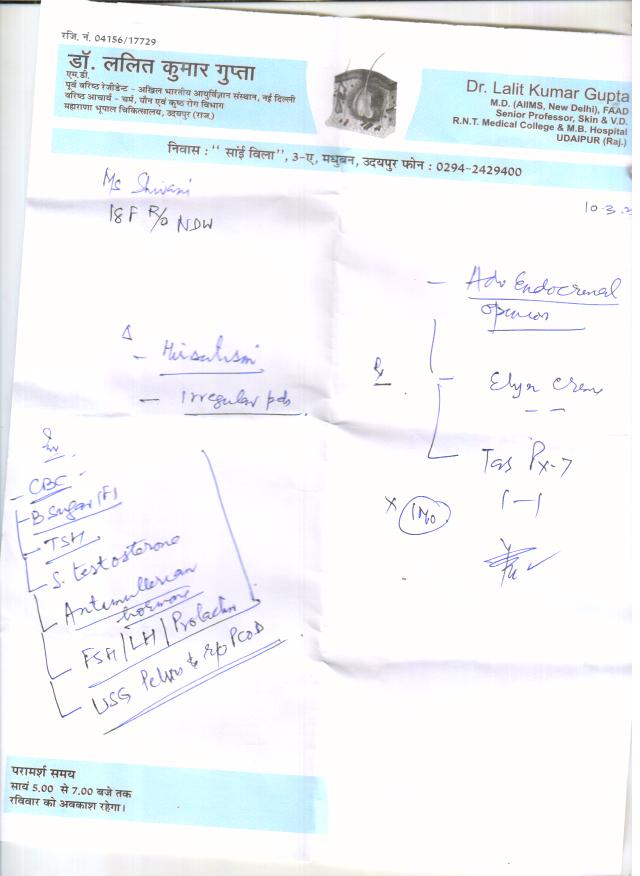 रजि. नं. 04156/17729
डॉ. ललित कुमार गुप्ता
एम.डी.
पूर्व वरिष्ठ रेजीडेन्ट - अखिल भारतीय आयुर्विज्ञान संस्थान, नई दिल्ली
वरिष्ठ आचार्य - चर्म, यौन एवं कुष्ठ रोग विभाग
महाराणा भूपाल चिकित्सालय, उदयपुर (राज.)
Dr. Lalit Kumar Gupta
M.D. (AIIMS, New Delhi), FAAD
Senior Professor, Skin & V.D.
R.N.T. Medical College & M.B. Hospital
UDAIPUR (Raj.)
निवास : " सांई विला", 3-ए, मधुबन, उदयपुर फोन : 0294-2429400
Ms Shivani
18 F R/o NDW
10-3.
- Adv Endocrenal
opinion
Δ
- Hirsutism
- Irregular pds.
Rx
Cream
Tab Px-7
1-1
x 1 mo
Inv
- CBC
- B Sugar (F)
- TSH
- S. testosterone
Antimullerian
hormone
FSH/LH/Prolactin
USG Pelvis to r/o PCOD
परामर्श समय
सायं 5.00 से 7.00 बजे तक
रविवार को अवकाश रहेगा।